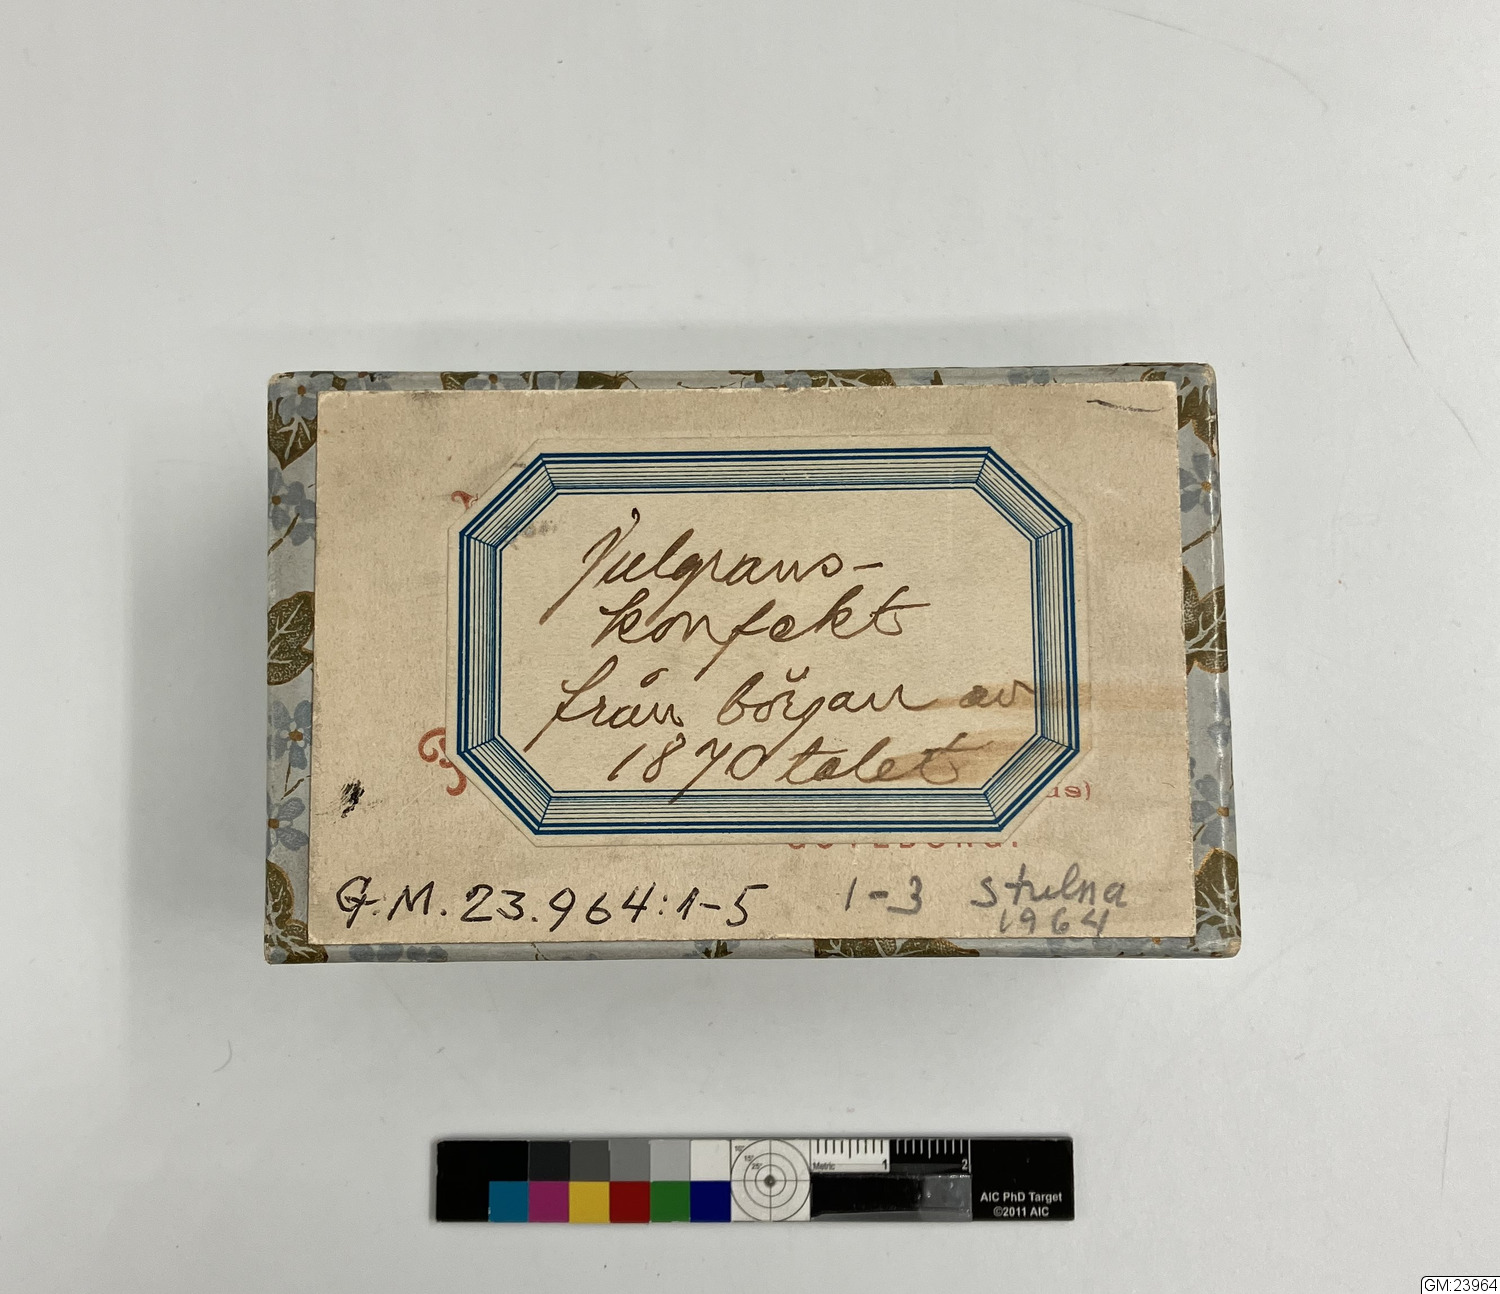 Julgrans-
konfekt
från början av
1870 talet
us)
GÖTEBORG.
G.M. 23.964:1-5
1-3 Stulna
1964
10°
15°
25°
Metric 1 2
AIC PhD Target
©2011 AIC
GM:23964